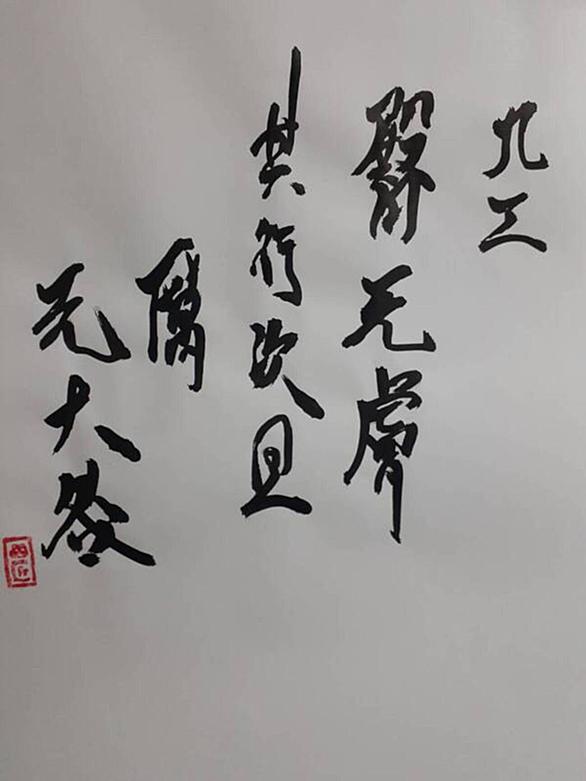 九三
臀无膚
其行次且
厲
无大咎